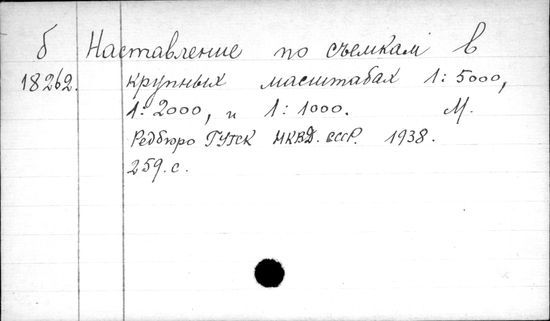 б Наставление по съемкам в
18262. крупных масштабах 1:5000,
1:2000, и 1:1000. М.
Редбюро ГУГСК НКВД. СССР. 1938.
259.с.